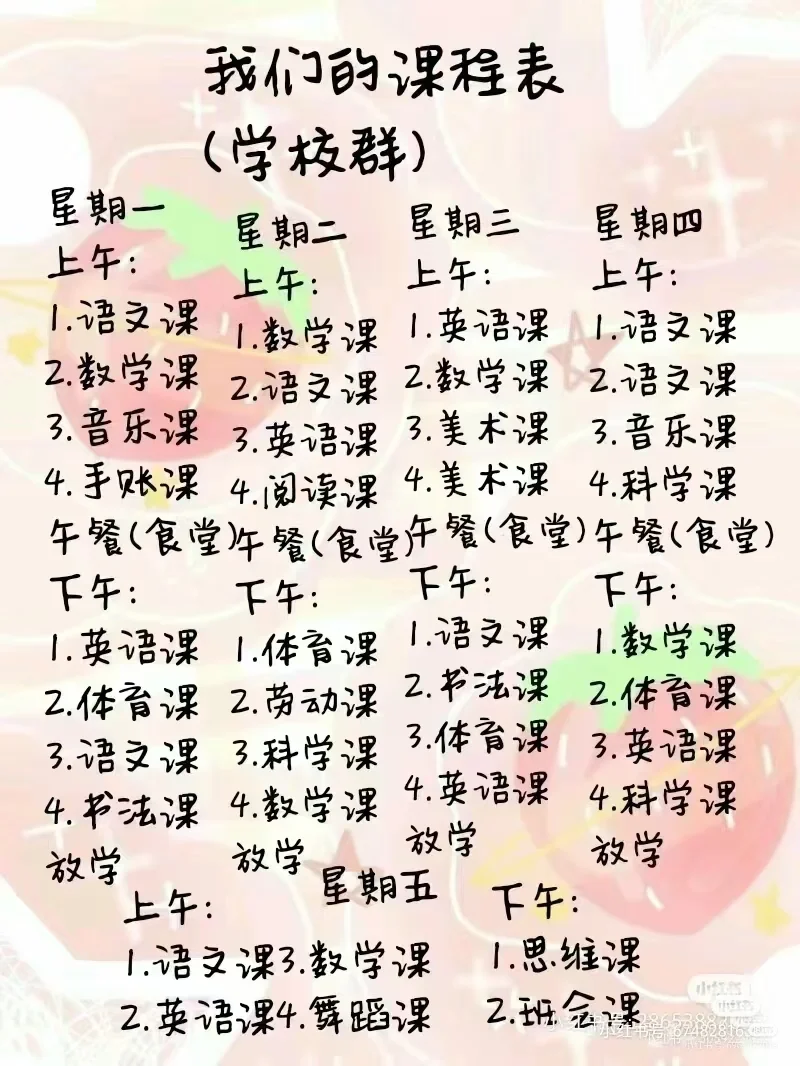 我们的课程表
(学校群)
星期一
上午:
1.语文课
2.数学课
3.音乐课
4.手账课
午餐(食堂)
下午:
1.英语课
2.体育课
3.语文课
4.书法课
放学
星期二
上午:
1.数学课
2.语文课
3.英语课
4.阅读课
午餐(食堂)
下午:
1.体育课
2.劳动课
3.科学课
4.数学课
放学
星期三
上午:
1.英语课
2.数学课
3.美术课
4.美术课
午餐(食堂)
下午:
1.语文课
2.书法课
3.体育课
4.英语课
放学
星期四
上午:
1.语文课
2.语文课
3.音乐课
4.科学课
午餐(食堂)
下午:
1.数学课
2.体育课
3.英语课
4.科学课
放学
星期五
上午:
1.语文课3.数学课
2.英语课4.舞蹈课
下午:
1.思维课
2.班会课
小红书